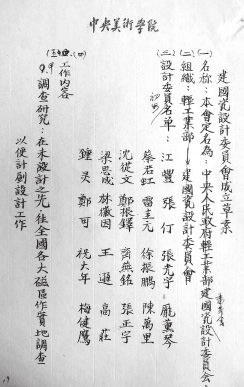 中央美術學院
建國瓷設計委員會成立草案
(一) 名称：本會定名為：中央人民政府輕工業部建國瓷設計委員會
(二) 組織：輕工業部——建國瓷設計委員會
(三) 設計委員名單：
江豐 張仃 張光宇 龐薰琹
蔡若虹 雷圭元 徐振鵬 陳萬里
沈從文 鄭振鐸 齊燕銘 張正宇
梁思成 林徽因 王遜 高莊
鍾灵 鄭可 祝大年 梅健鷹
(四) 工作内容
調查研究：在未設計之先，往全國各大磁區作實地調查
以便計劃設計工作